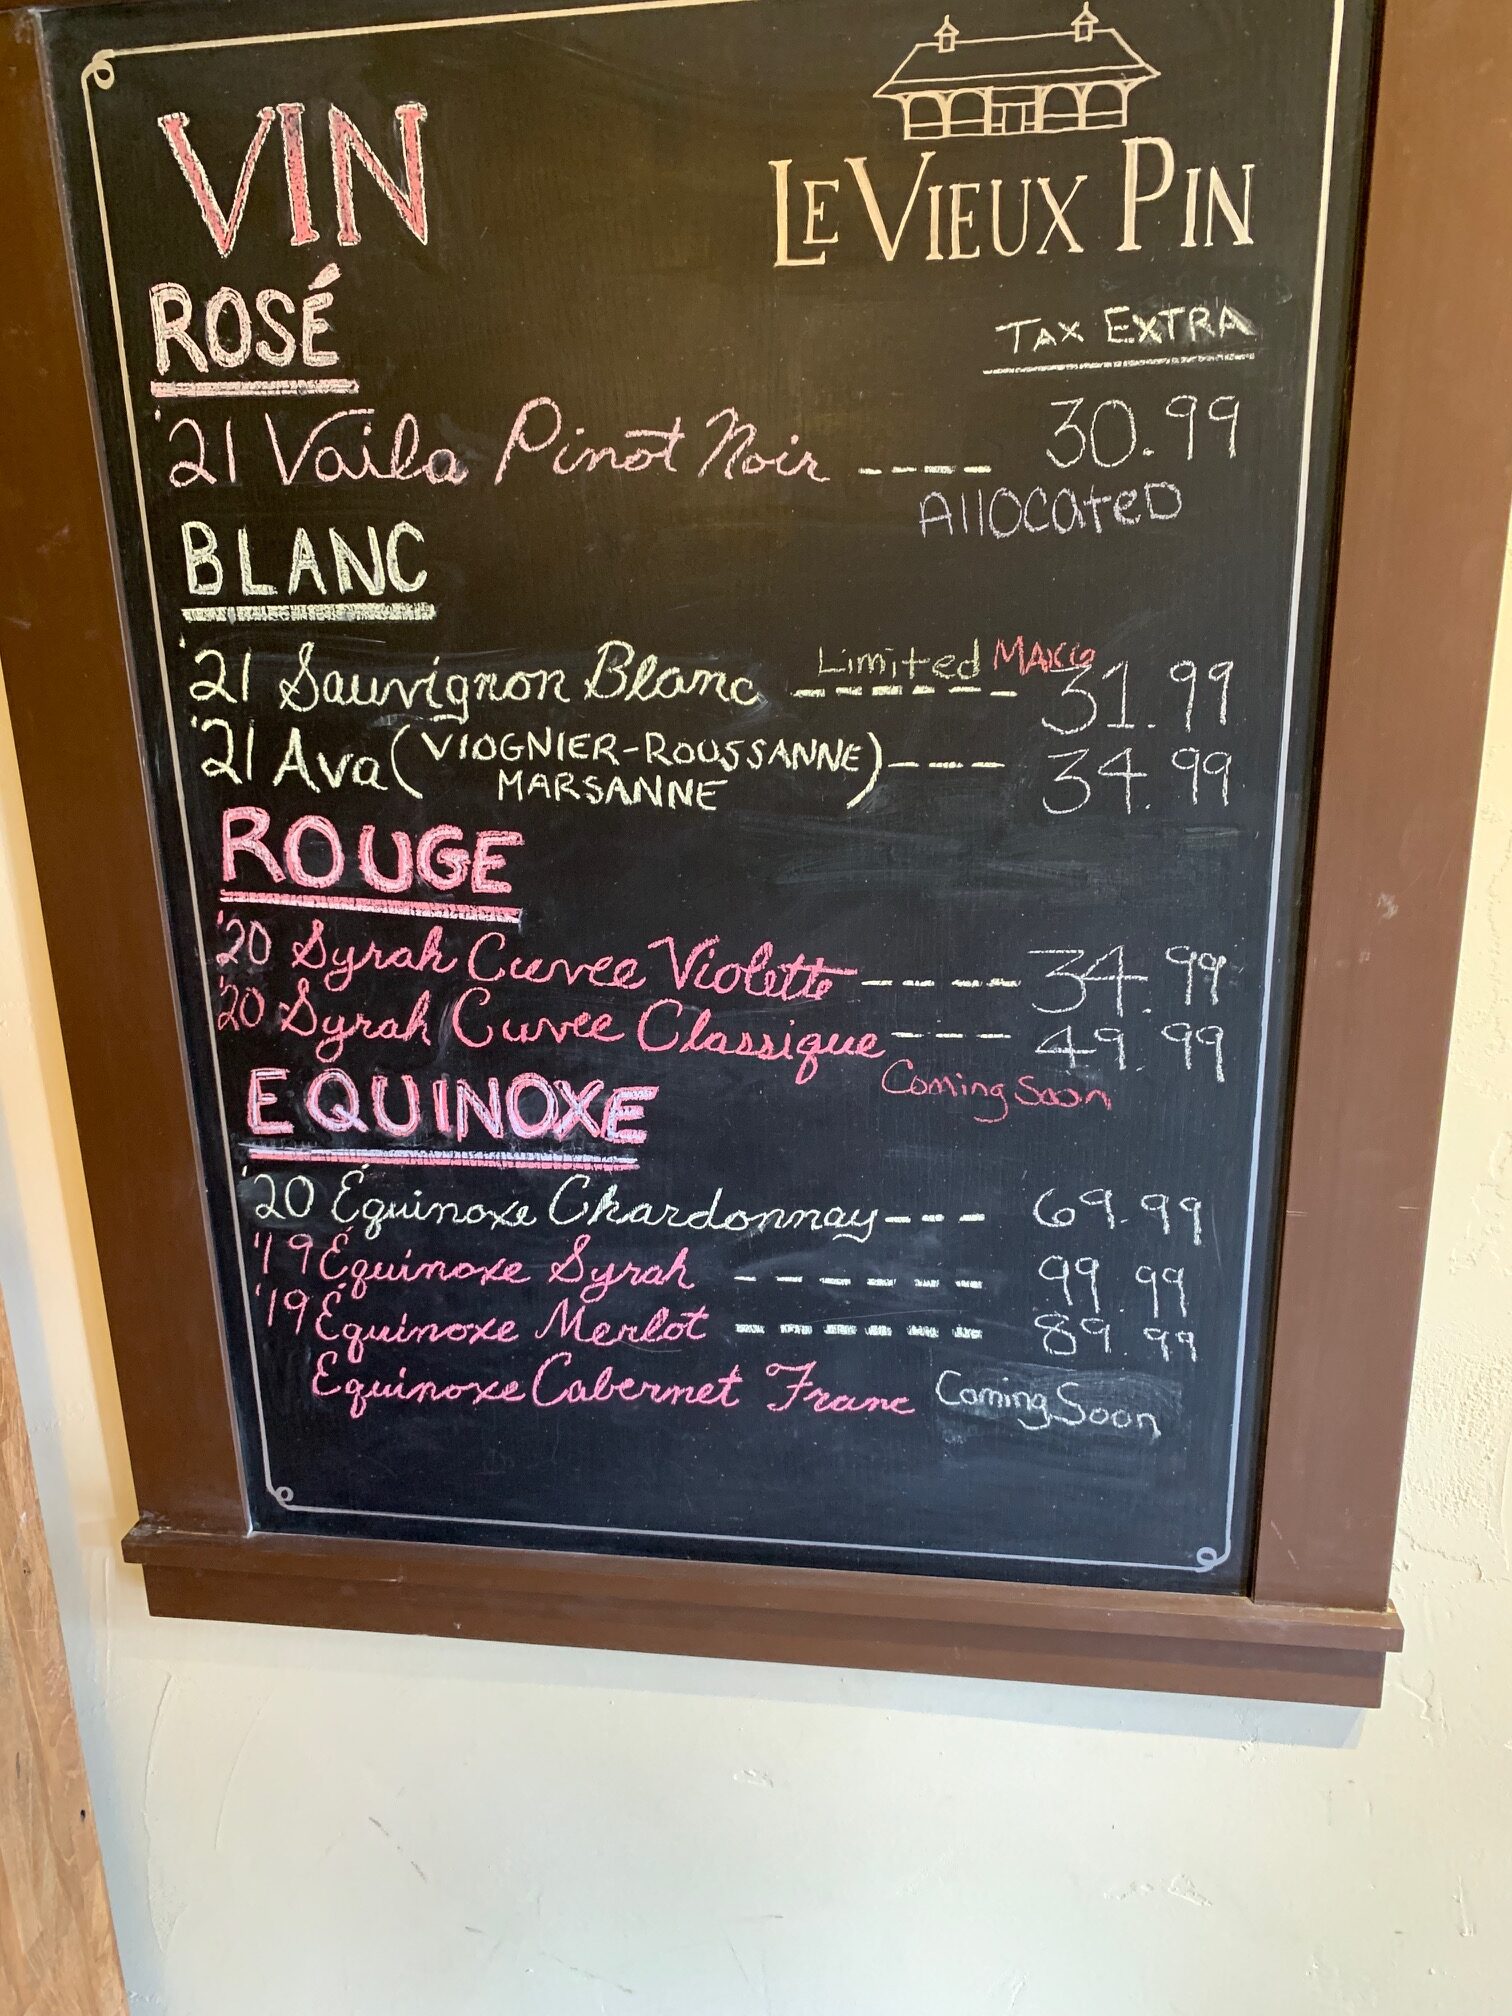 VIN
LE VIEUX PIN
ROSÉ
TAX EXTRA
'21 Vaila Pinot Noir ---- 30.99
Allocated
BLANC
Limited
'21 Sauvignon Blanc ------ 31.99
'21 Ava (VIOGNIER-ROUSSANNE MARSANNE) ---- 34.99
ROUGE
'20 Syrah Cuvee Violette ---- 34.99
'20 Syrah Cuvee Classique --- 49.99
Coming Soon
EQUINOXE
'20 Équinoxe Chardonnay --- 69.99
'19 Équinoxe Syrah ------ 99.99
'19 Équinoxe Merlot ------ 89.99
Équinoxe Cabernet Franc Coming Soon